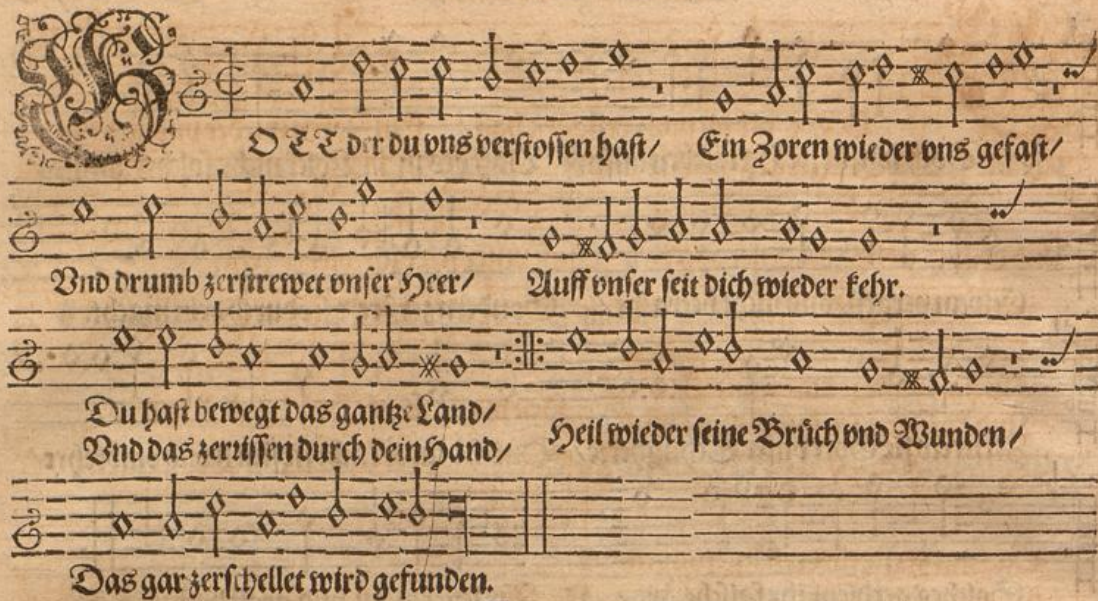 GOTT der du vns verstossen hast/ Ein Zoren wieder vns gefast/
Vnd drumb zerstrewet vnser Heer/ Auff vnser seit dich wieder kehr.
Du hast bewegt das gantze Land/
Vnd das zerrissen durch dein Hand/ Heil wieder seine Brüch vnd Wunden/
Das gar zerschellet wird gefunden.